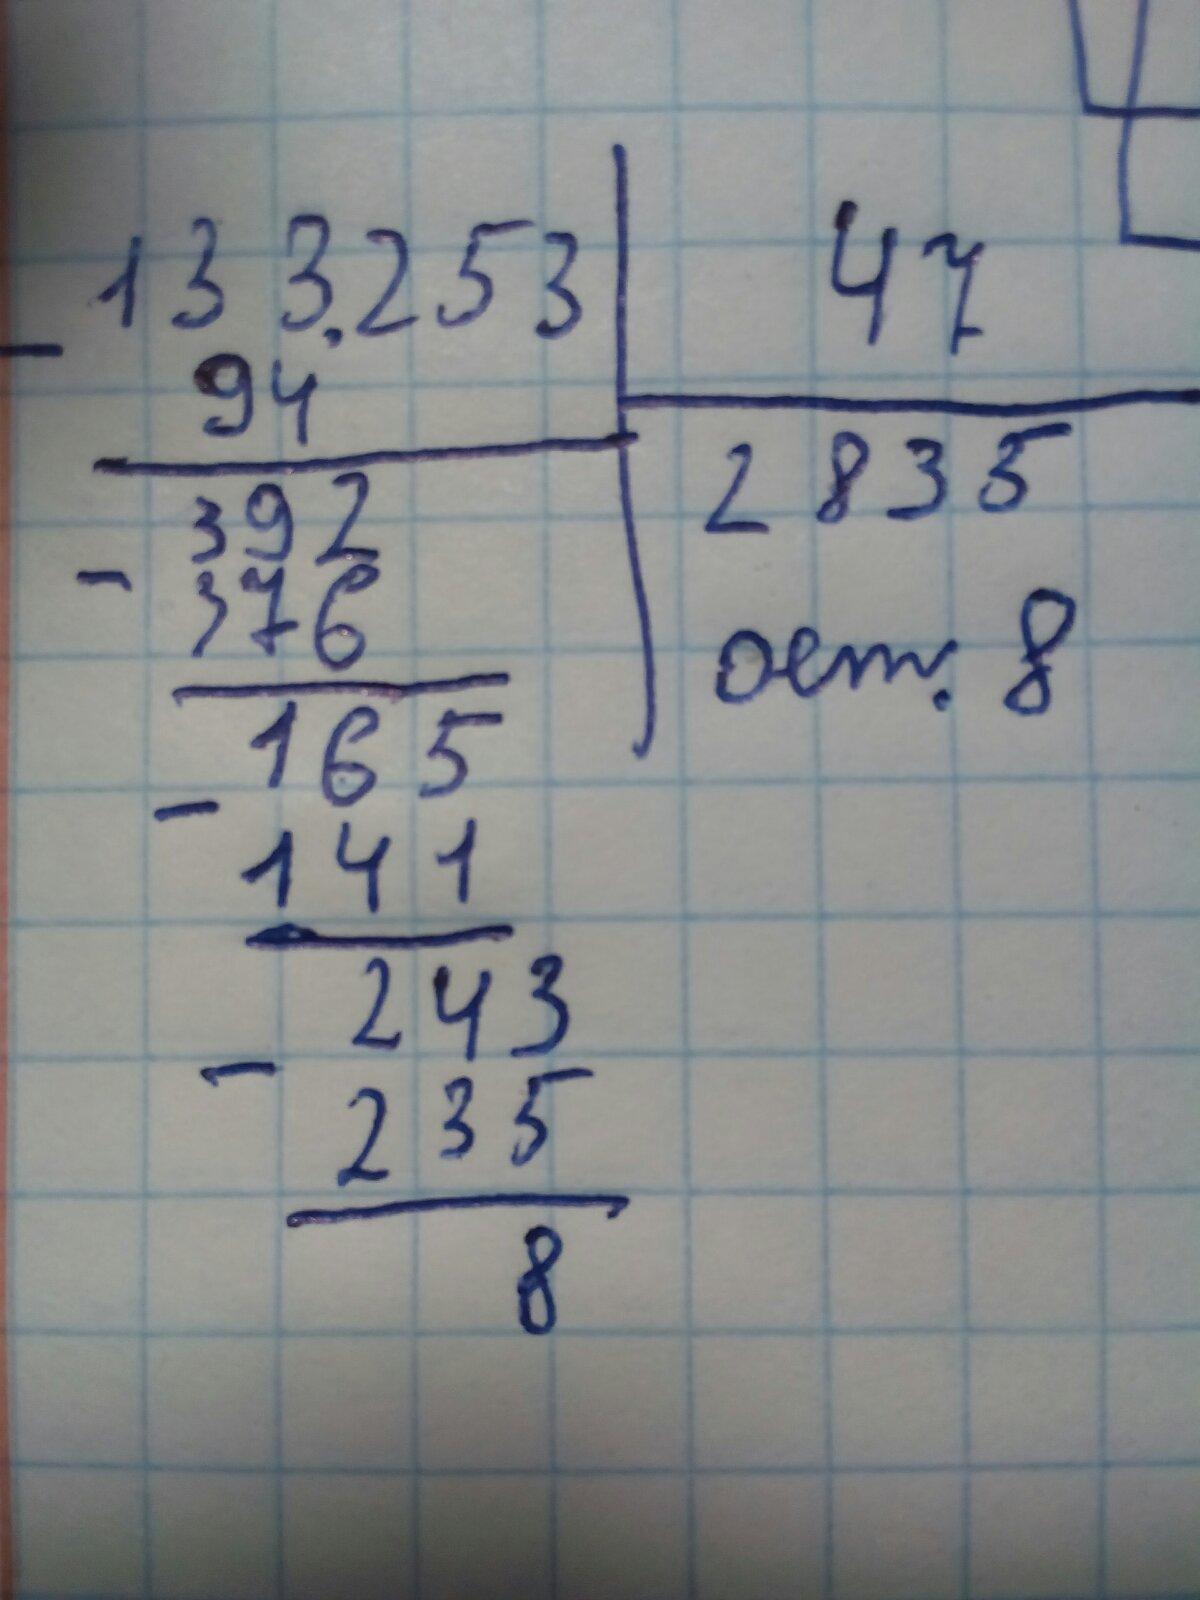 133.253 47
- 94
2835
392
- 376
ост. 8
165
- 141
243
- 235
8